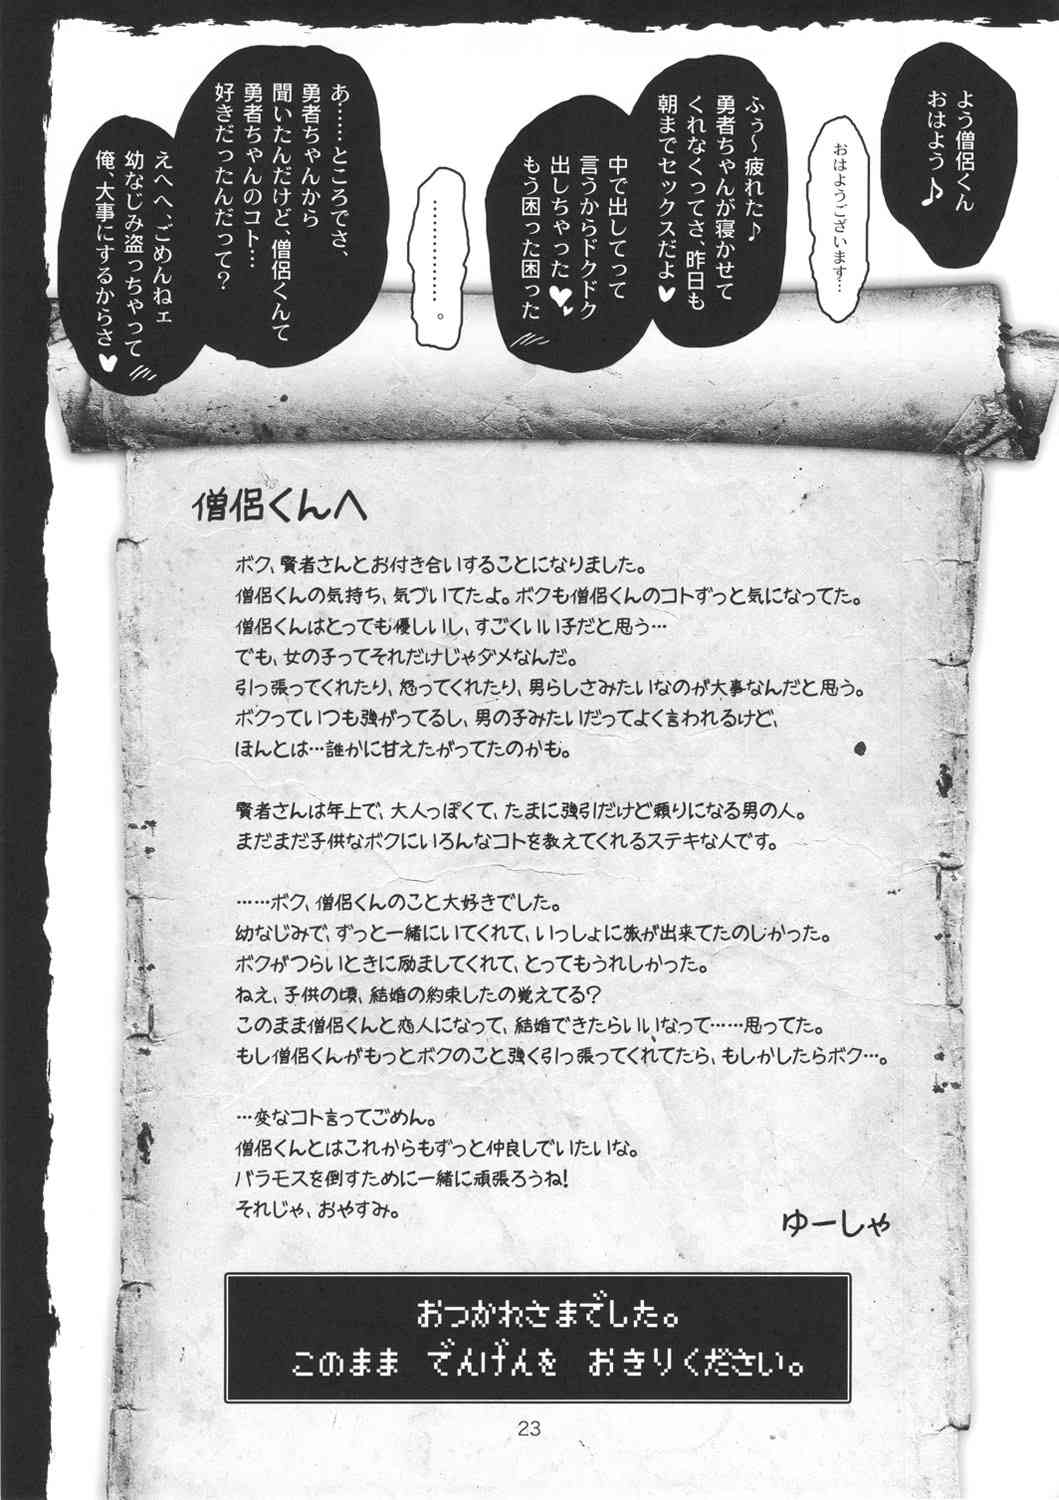 よう僧侶くん
おはよう♪
おはようございます…
ふぅ～疲れた♪
勇者ちゃんが寝かせて
くれなくってさ、昨日も
朝までセックスだよ♥
中で出してって
言うからドクドク
出しちゃった♥
もう困った困った
…………。
あ……ところでさ、
勇者ちゃんから
聞いたんだけど、僧侶くんて
勇者ちゃんのコト…
好きだったんだって?
えへへ、ごめんねェ
幼なじみ盗っちゃって
俺、大事にするからさ♥
僧侶くんへ
ボク、賢者さんとお付き合いすることになりました。
僧侶くんの気持ち、気づいてたよ。ボクも僧侶くんのコトずっと気になってた。
僧侶くんはとっても優しいし、すごくいい子だと思う…
でも、女の子ってそれだけじゃダメなんだ。
引っ張ってくれたり、怒ってくれたり、男らしさみたいなのが大事なんだと思う。
ボクっていつも強がってるし、男の子みたいだってよく言われるけど、
ほんとは…誰かに甘えたがってたのかも。
賢者さんは年上で、大人っぽくて、たまに強引だけど頼りになる男の人。
まだまだ子供なボクにいろんなコトを教えてくれるステキな人です。
……ボク、僧侶くんのこと大好きでした。
幼なじみで、ずっと一緒にいてくれて、いっしょに旅が出来てたのしかった。
ボクがつらいときに励ましてくれて、とってもうれしかった。
ねえ、子供の頃、結婚の約束したの覚えてる?
このまま僧侶くんと恋人になって、結婚できたらいいなって……思ってた。
もし僧侶くんがもっとボクのこと強く引っ張ってくれてたら、もしかしたらボク…。
…変なコト言ってごめん。
僧侶くんとはこれからもずっと仲良しでいたいな。
バラモスを倒すために一緒に頑張ろうね!
それじゃ、おやすみ。
ゆーしゃ
おつかれさまでした。
このまま でんげんを おきりください。
23